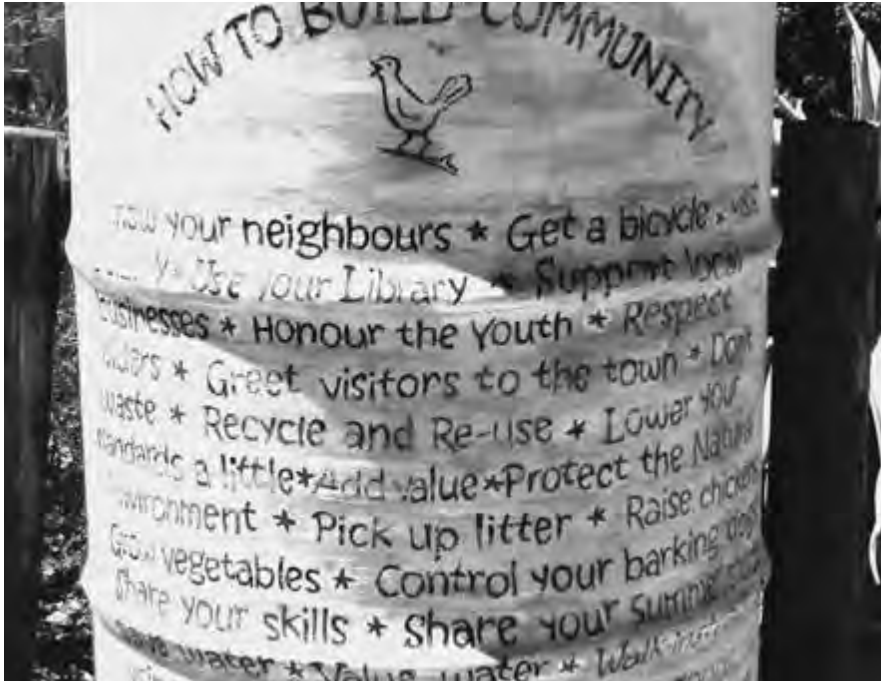 HOW TO BUILD COMMUNITY
your neighbours * Get a bicycle.
Use your Library * Support local
businesses * Honour the Youth * Respect
elders * Greet visitors to the town * Don't
waste * Recycle and Re-use * Lower your
standards a little*Add value*Protect the Natural
environment * Pick up litter * Raise chickens
Grow vegetables * Control your barking dogs
Share your skills * Share your summer
save water * Value water *